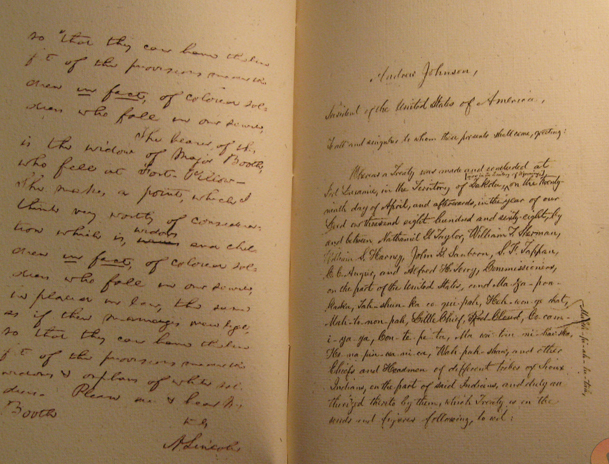 so that they can have the ben
fit of the provisions made in
dren in fact, of colored sol
diers who fall in our service,
The bearer of this,
is the widow of Major Booth,
who fell at Fort Pillow
She makes a point, which I
think very worthy of considera
tion which is, widows and chil
dren in fact, of colored sol
diers who fall in our service,
be placed in law, the same
as if their marriages were legal,
so that they can have the ben
fit of the provisions made the
widows & orphans of white sol
diers. Please see & hear Mrs
Booth
A. Lincoln
Andrew Johnson,
President of the United States of America,
To all and singular to whom these presents shall come, greeting:
Whereas a Treaty was made and concluded at
Fort Laramie, in the Territory of Dakota, on the twenty-
ninth day of April, and afterwards, in the year of our
Lord one thousand eight hundred and sixty-eight, by
and between Nathaniel G. Taylor, William T. Sherman,
William S. Harney, John B. Sanborn, S. F. Tappan,
C. C. Augur, and Alfred H. Terry, Commissioners,
on the part of the United States, and
Little Chief,
and other
Chiefs and Headmen of different tribes of Sioux
Indians, on the part of said Indians, and duly au
thorized thereto by them, which Treaty is in the
words and figures following, to wit: